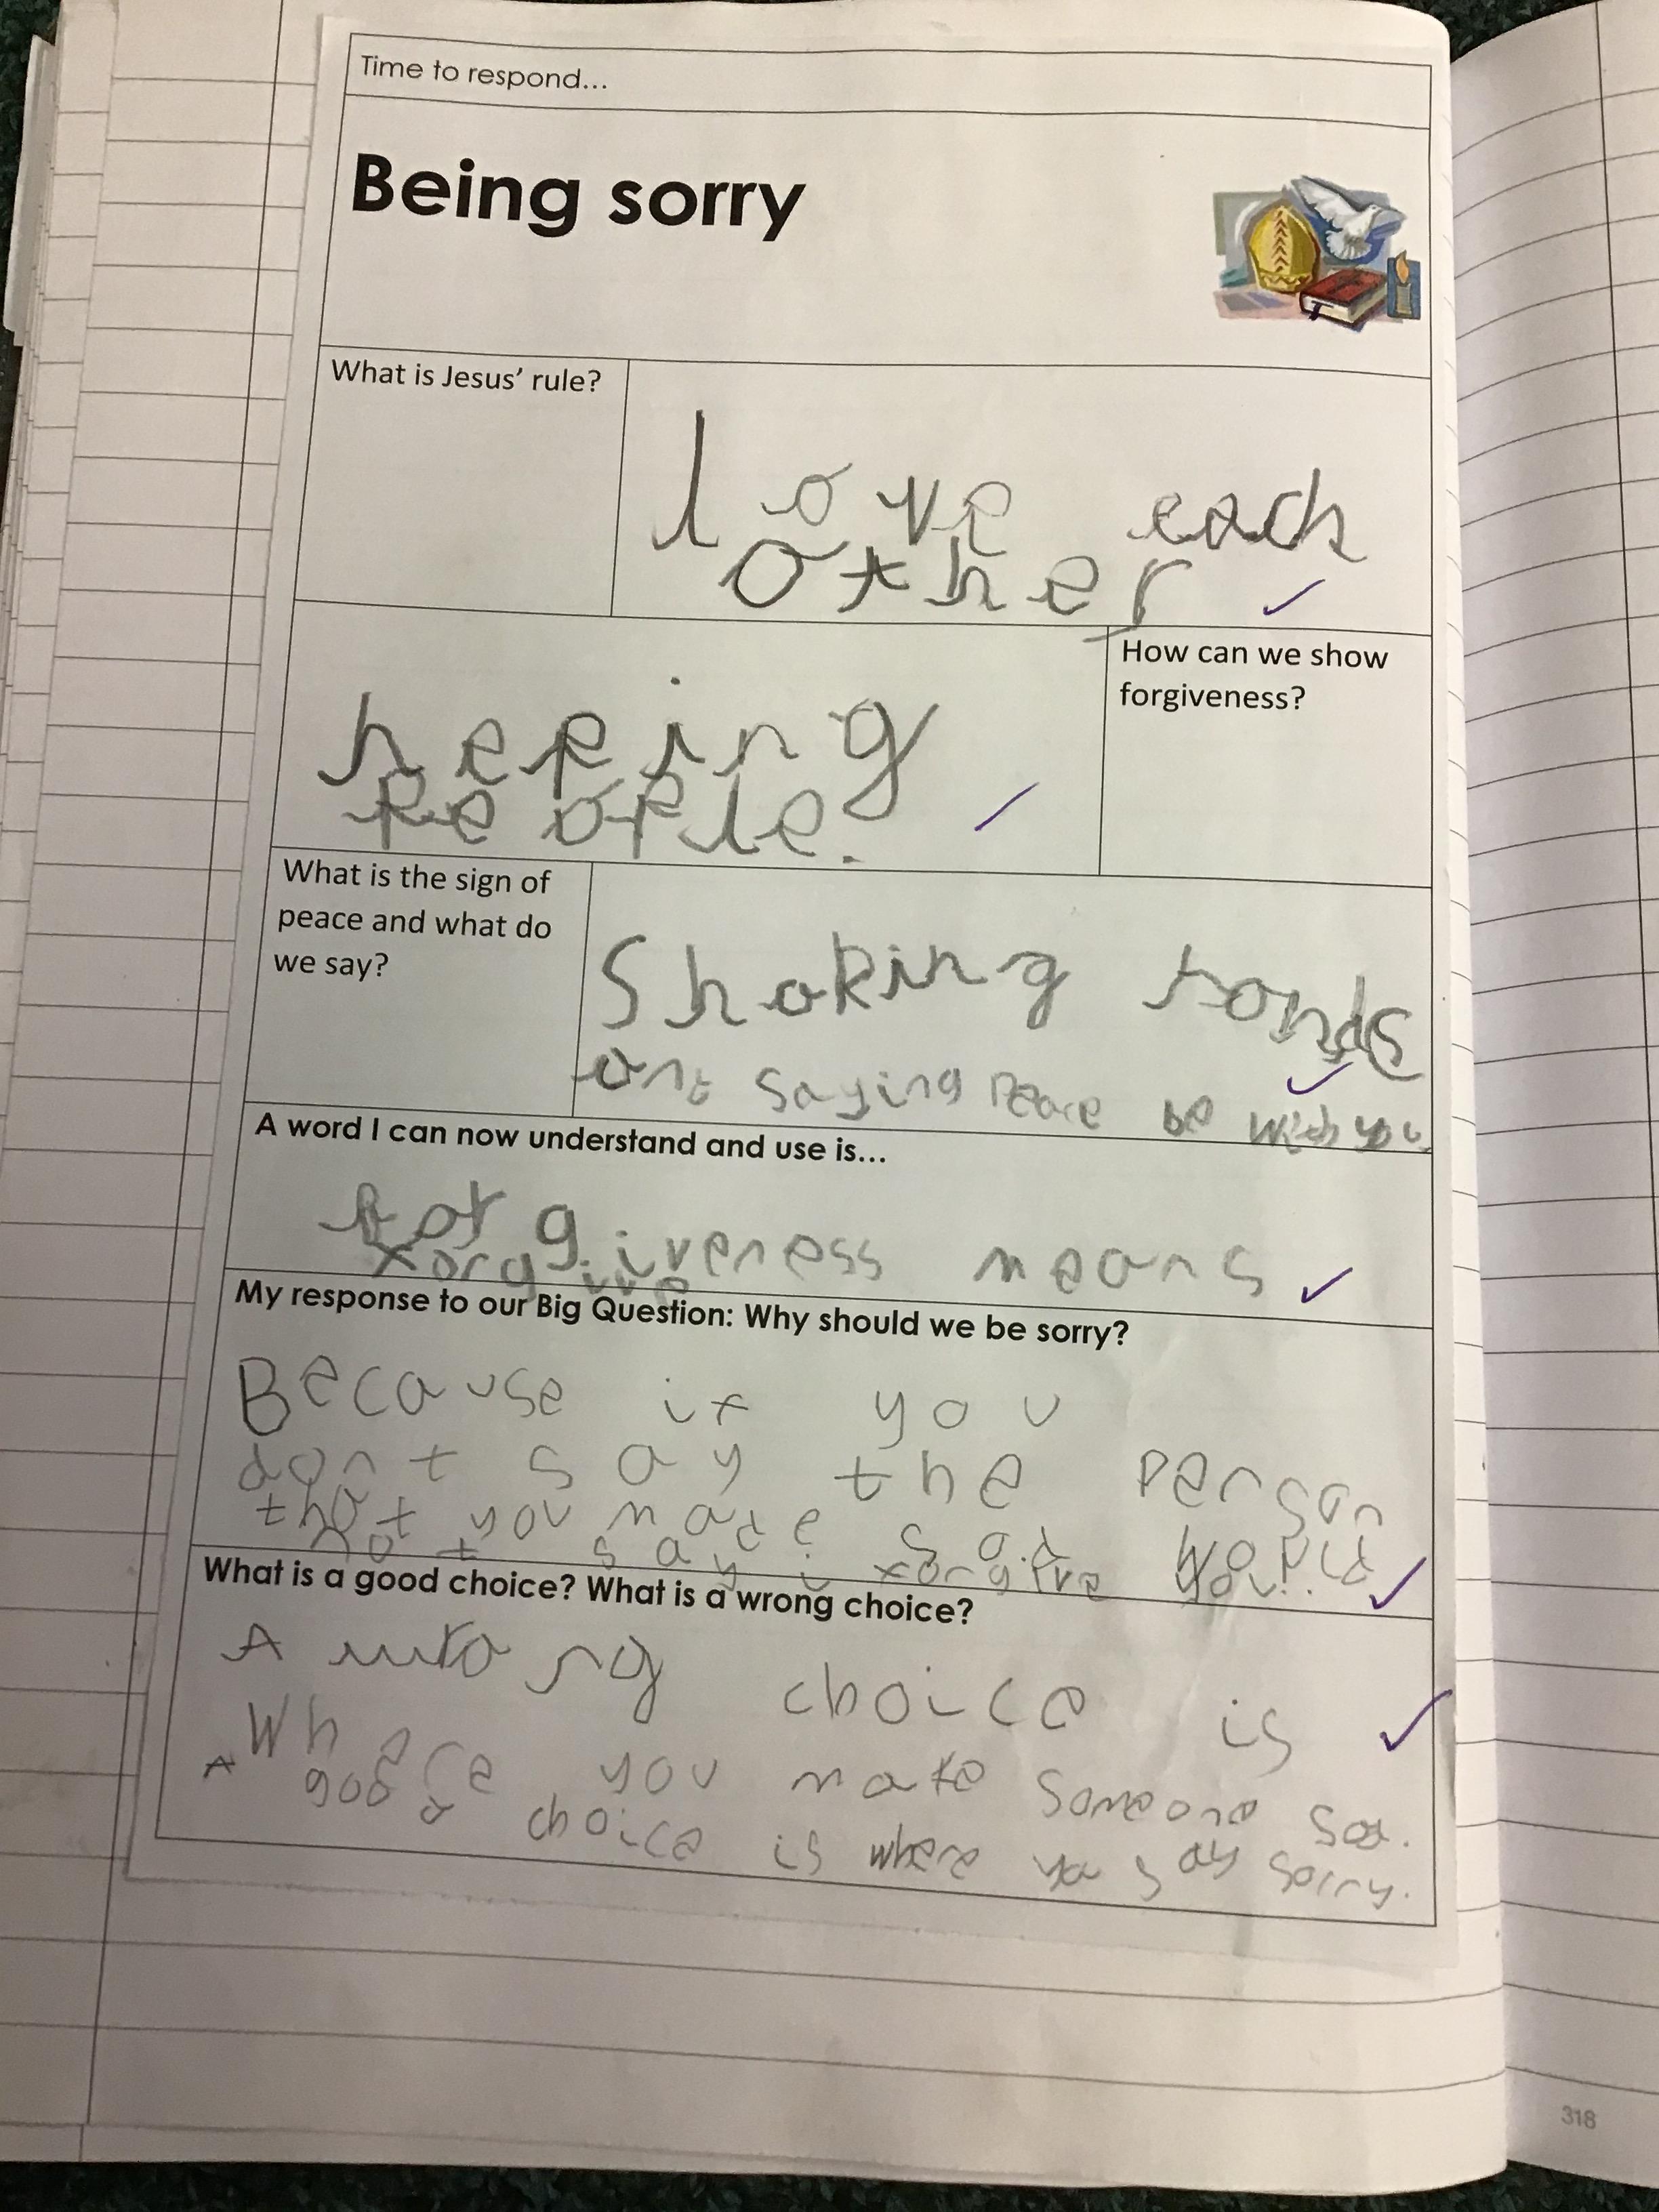 Time to respond...
Being sorry
What is Jesus' rule?
love each
other
heping
people.
How can we show
forgiveness?
What is the sign of
peace and what do
we say?
Shaking hands
ant saying Peace be with you
A word I can now understand and use is...
forgiveness means
forgive
My response to our Big Question: Why should we be sorry?
Because if you
dont say the person
that you made sad would
not say i forgive you.
What is a good choice? What is a wrong choice?
A wrong choice is
Where you make someone sad.
A good choice is where you say sorry.
318